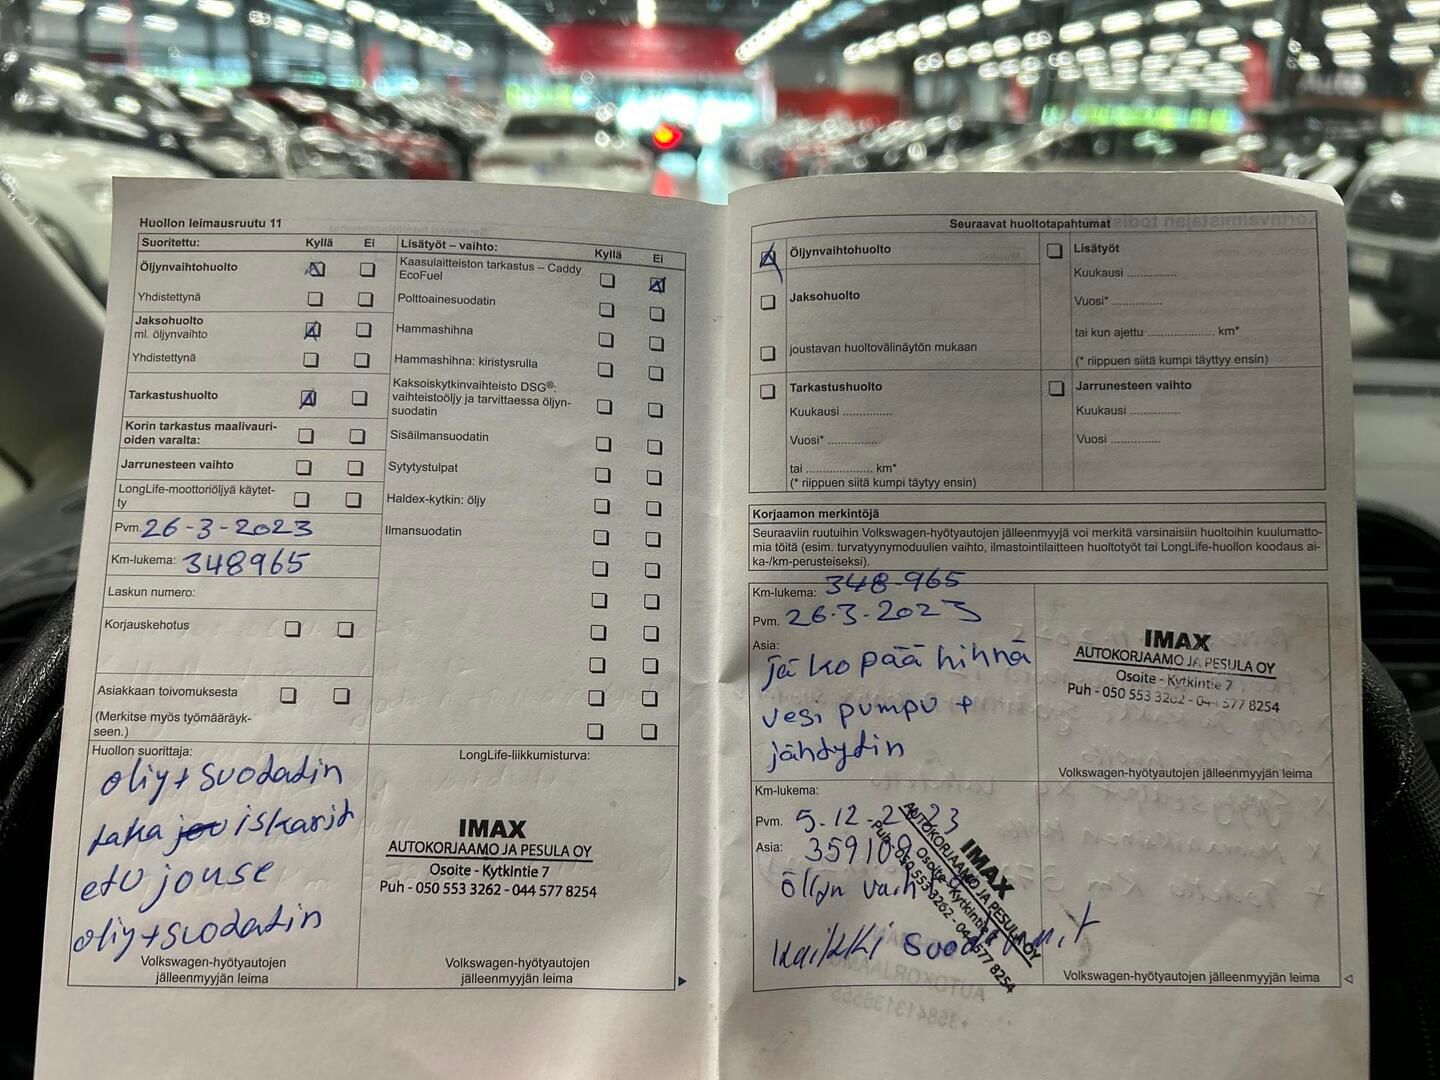 Huollon leimausruutu 11
Suoritettu: Kyllä Ei
Öljynvaihtohuolto
Yhdistettynä
Jaksohuolto
ml. öljynvaihto
Yhdistettynä
Tarkastushuolto
Korin tarkastus maalivauri-
oiden varalta:
Jarrunesteen vaihto
LongLife-moottoriöljyä käytet-
ty
Pvm. 26-3-2023
Km-lukema: 348965
Laskun numero:
Korjauskehotus
Asiakkaan toivomuksesta
(Merkitse myös työmääräyk-
seen.)
Huollon suorittaja:
oliy+suodatin
taka iskarit
etu jouse
oliy+suodatin
Volkswagen-hyötyautojen
jälleenmyyjän leima
Lisätyöt – vaihto: Kyllä Ei
Kaasulaitteiston tarkastus – Caddy
EcoFuel
Polttoainesuodatin
Hammashihna
Hammashihna: kiristysrulla
Kaksoiskytkinvaihteisto DSG®:
vaihteistoöljy ja tarvittaessa öljyn-
suodatin
Sisäilmansuodatin
Sytytystulpat
Haldex-kytkin: öljy
Ilmansuodatin
LongLife-liikkumisturva:
IMAX
AUTOKORJAAMO JA PESULA OY
Osoite - Kytkintie 7
Puh - 050 553 3262 - 044 577 8254
Volkswagen-hyötyautojen
jälleenmyyjän leima
Seuraavat huoltotapahtumat
Öljynvaihtohuolto
Jaksohuolto
joustavan huoltovälinäytön mukaan
Tarkastushuolto
Kuukausi ...............
Vuosi* ...............
tai .................... km*
(* riippuen siitä kumpi täytyy ensin)
Lisätyöt
Kuukausi ...............
Vuosi* ...............
tai kun ajettu .................... km*
(* riippuen siitä kumpi täyttyy ensin)
Jarrunesteen vaihto
Kuukausi ...............
Vuosi ...............
Korjaamon merkintöjä
Seuraaviin ruutuihin Volkswagen-hyötyautojen jälleenmyyjä voi merkitä varsinaisiin huoltoihin kuulumatto-
mia töitä (esim. turvatyynymoduulien vaihto, ilmastointilaitteen huoltotyöt tai LongLife-huollon koodaus ai-
ka-/km-perusteiseksi).
Km-lukema: 348-965
Pvm. 26.3-2023
Asia:
jä ko pää hihnä
vesi pumpu +
jähdytin
IMAX
AUTOKORJAAMO JA PESULA OY
Osoite - Kytkintie 7
Puh - 050 553 3262 - 044 577 8254
Volkswagen-hyötyautojen jälleenmyyjän leima
Km-lukema:
Pvm. 5.12-2023
Asia: 359109
öllyn vaih
kaikki suodatimit
IMAX
AUTOKORJAAMO JA PESULA OY
Osoite - Kytkintie 7
Puh - 050 553 3262 - 044 577 8254
Volkswagen-hyötyautojen jälleenmyyjän leima